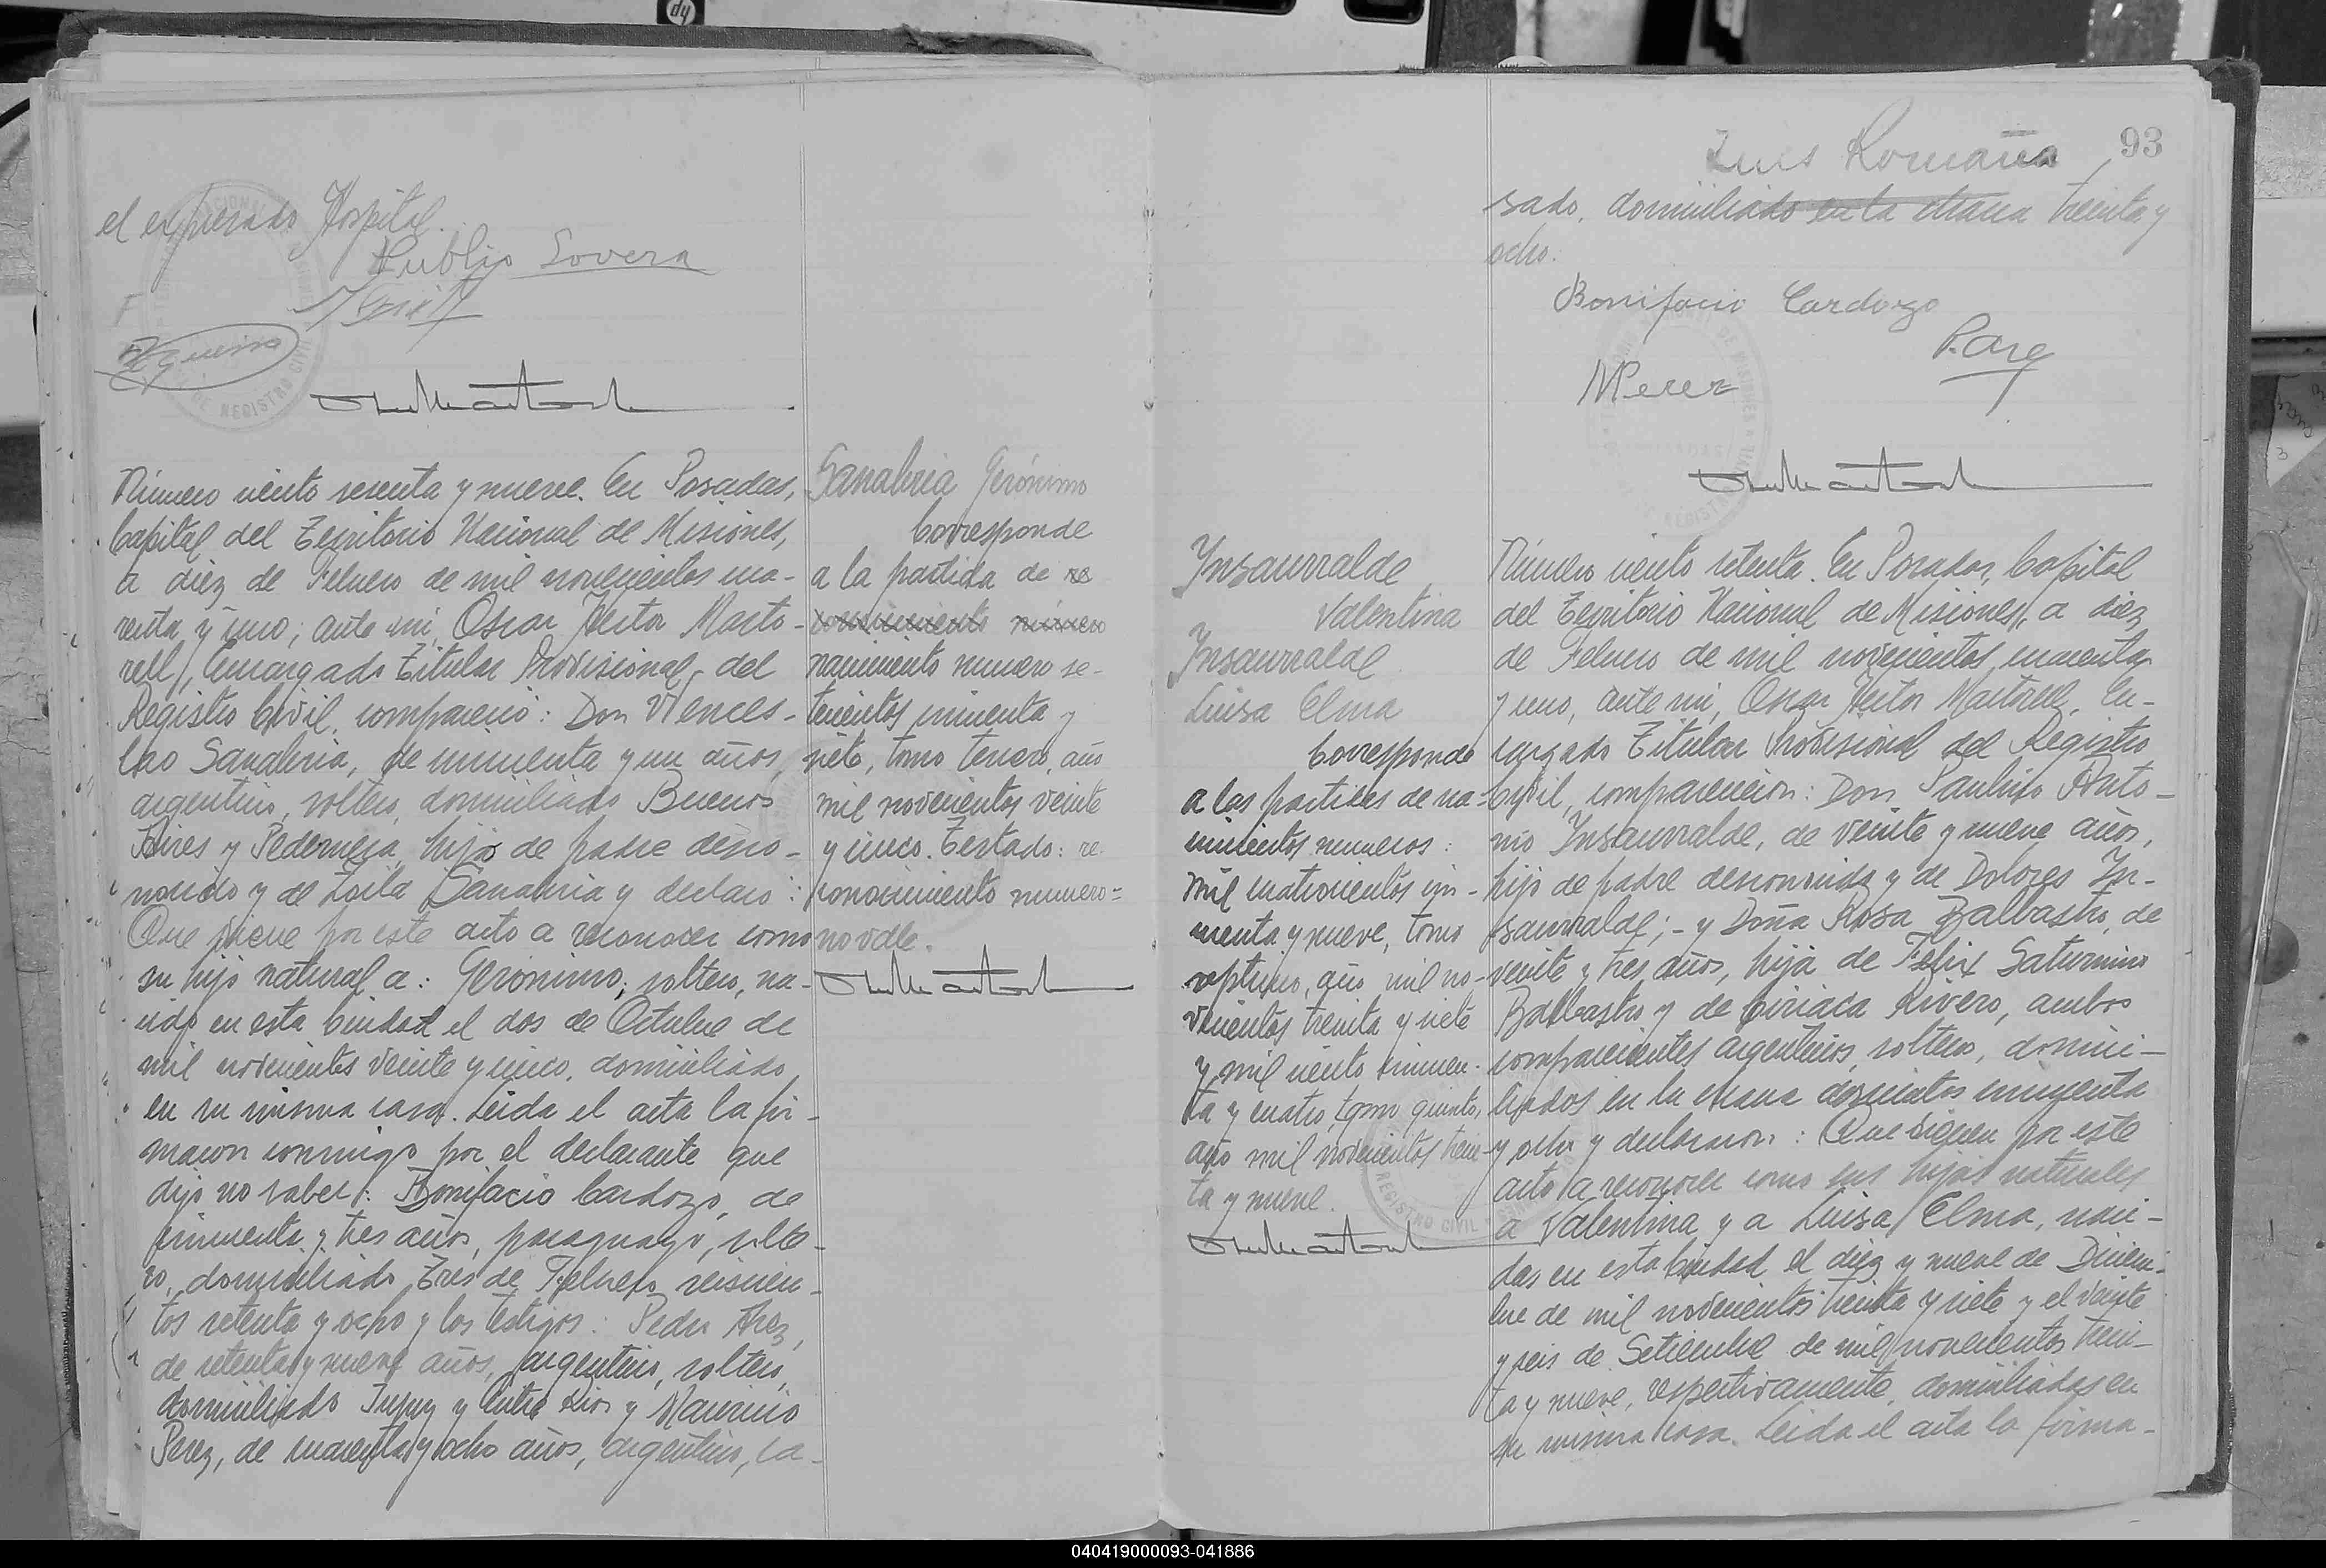 el expresado Hospital.
Publio Lovera
Número ciento sesenta y nueve. En Posadas,
Capital del Territorio Nacional de Misiones,
a diez de Febrero de mil novecientos cua-
renta y uno, ante mi, Oscar Hector Marto-
rell, Encargado Titular Provisional del
Registro Civil, compareció: Don Wences-
lao Sanabria, de cincuenta y un años,
argentino, soltero, domiciliado Buenos
Aires y Pedernera, hijo de padre desco-
nocido y de Zoila Sanabria y declaró:
Que viene por este acto a reconocer como
su hijo natural a: Gerónimo, soltero, na-
cido en esta Ciudad el dos de Octubre de
mil novecientos veinte y cinco, domiciliado
en su misma casa. Leida el acta la fir-
maron conmigo por el declarante que
dijo no saber: Bonifacio Cardozo, de
cincuenta y tres años, paraguayo, solte-
ro, domiciliado Tres de Febrero seiscien-
tos setenta y ocho y los testigos: Pedro Arez,
de setenta y nueve años, argentino, soltero,
domiciliado Jujuy y Entre Rios y Mauricio
Perez, de cuarenta y ocho años, argentino, ca-
Sanabria Gerónimo
Corresponde
a la partida de re
conocimiento número
nacimiento numero se-
tecientos cincuenta y
siete, tomo tercero, año
mil novecientos veinte
y cinco. Testado: re
conocimiento numero=
no vale.
Luis Romaña
93
sado, domiciliado en la chacra treinta y
ocho.
Bonifacio Cardozo
P. Arez
MPerez
Ynsaurralde
Valentina
Insaurralde
Luisa Elma
Corresponde
a las partidas de na-
cimientos numeros:
mil cuatrocientos cin-
cuenta y nueve, tomo
septimo, año mil no-
vecientos treinta y siete
y mil ciento cincuen-
ta y cuatro, tomo quinto,
año mil novecientos trein-
ta y nueve.
Número ciento setenta. En Posadas, Capital
del Territorio Nacional de Misiones, a diez
de Febrero de mil novecientos cuarenta
y uno, ante mi, Oscar Hector Martorell, En-
cargado Titular Provisional del Registro
Civil, comparecieron: Don Paulino Anto-
nio Insaurralde, de veinte y nueve años,
hijo de padre desconocido y de Dolores In-
saurralde; - y Doña Rosa Balbastro, de
veinte y tres años, hija de Felix Saturnino
Balbastro y de Ciriaca Rivero, ambos
comparecientes argentinos, solteros, domici-
liados en la chacra doscientos cincuenta
y ocho y declararon: Que vienen por este
acto a reconocer como sus hijas naturales
a Valentina y a Luisa Elma, naci-
das en esta Ciudad el diez y nueve de Diciem-
bre de mil novecientos treinta y siete y el veinte
y seis de Setiembre de mil novecientos trein-
ta y nueve, respectivamente, domiciliadas en
su misma casa. Leida el acta la firma-
040419000093-041886